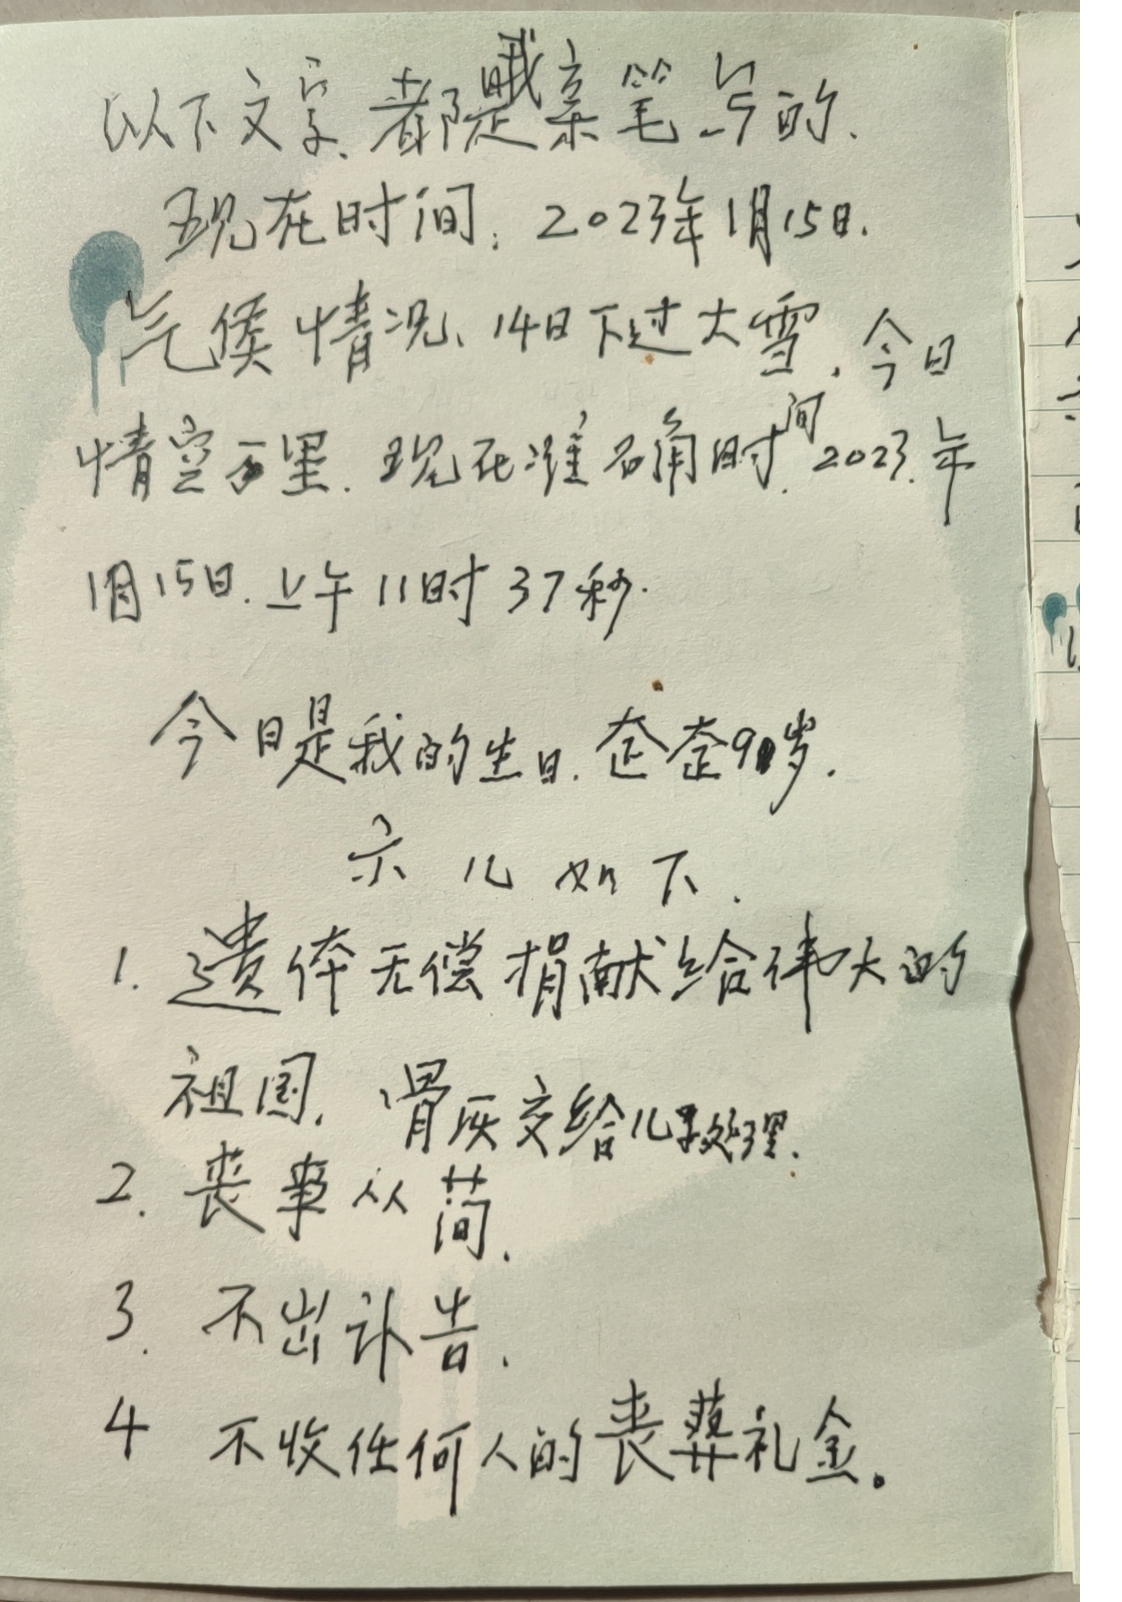 以下文字、都是我亲笔写的.
现在时间: 2023年1月15日.
气候情况、14日下过大雪. 今日
情空万里. 现在准确时间. 2023.年
1月15日. 上午11时37秒.
今日是我的生日. 歪歪90岁.
示儿如下.
1. 遗体无偿捐献给伟大的
祖国. 骨灰交给儿子处理.
2. 丧事从简.
3. 不出讣告.
4 不收任何人的丧葬礼金。